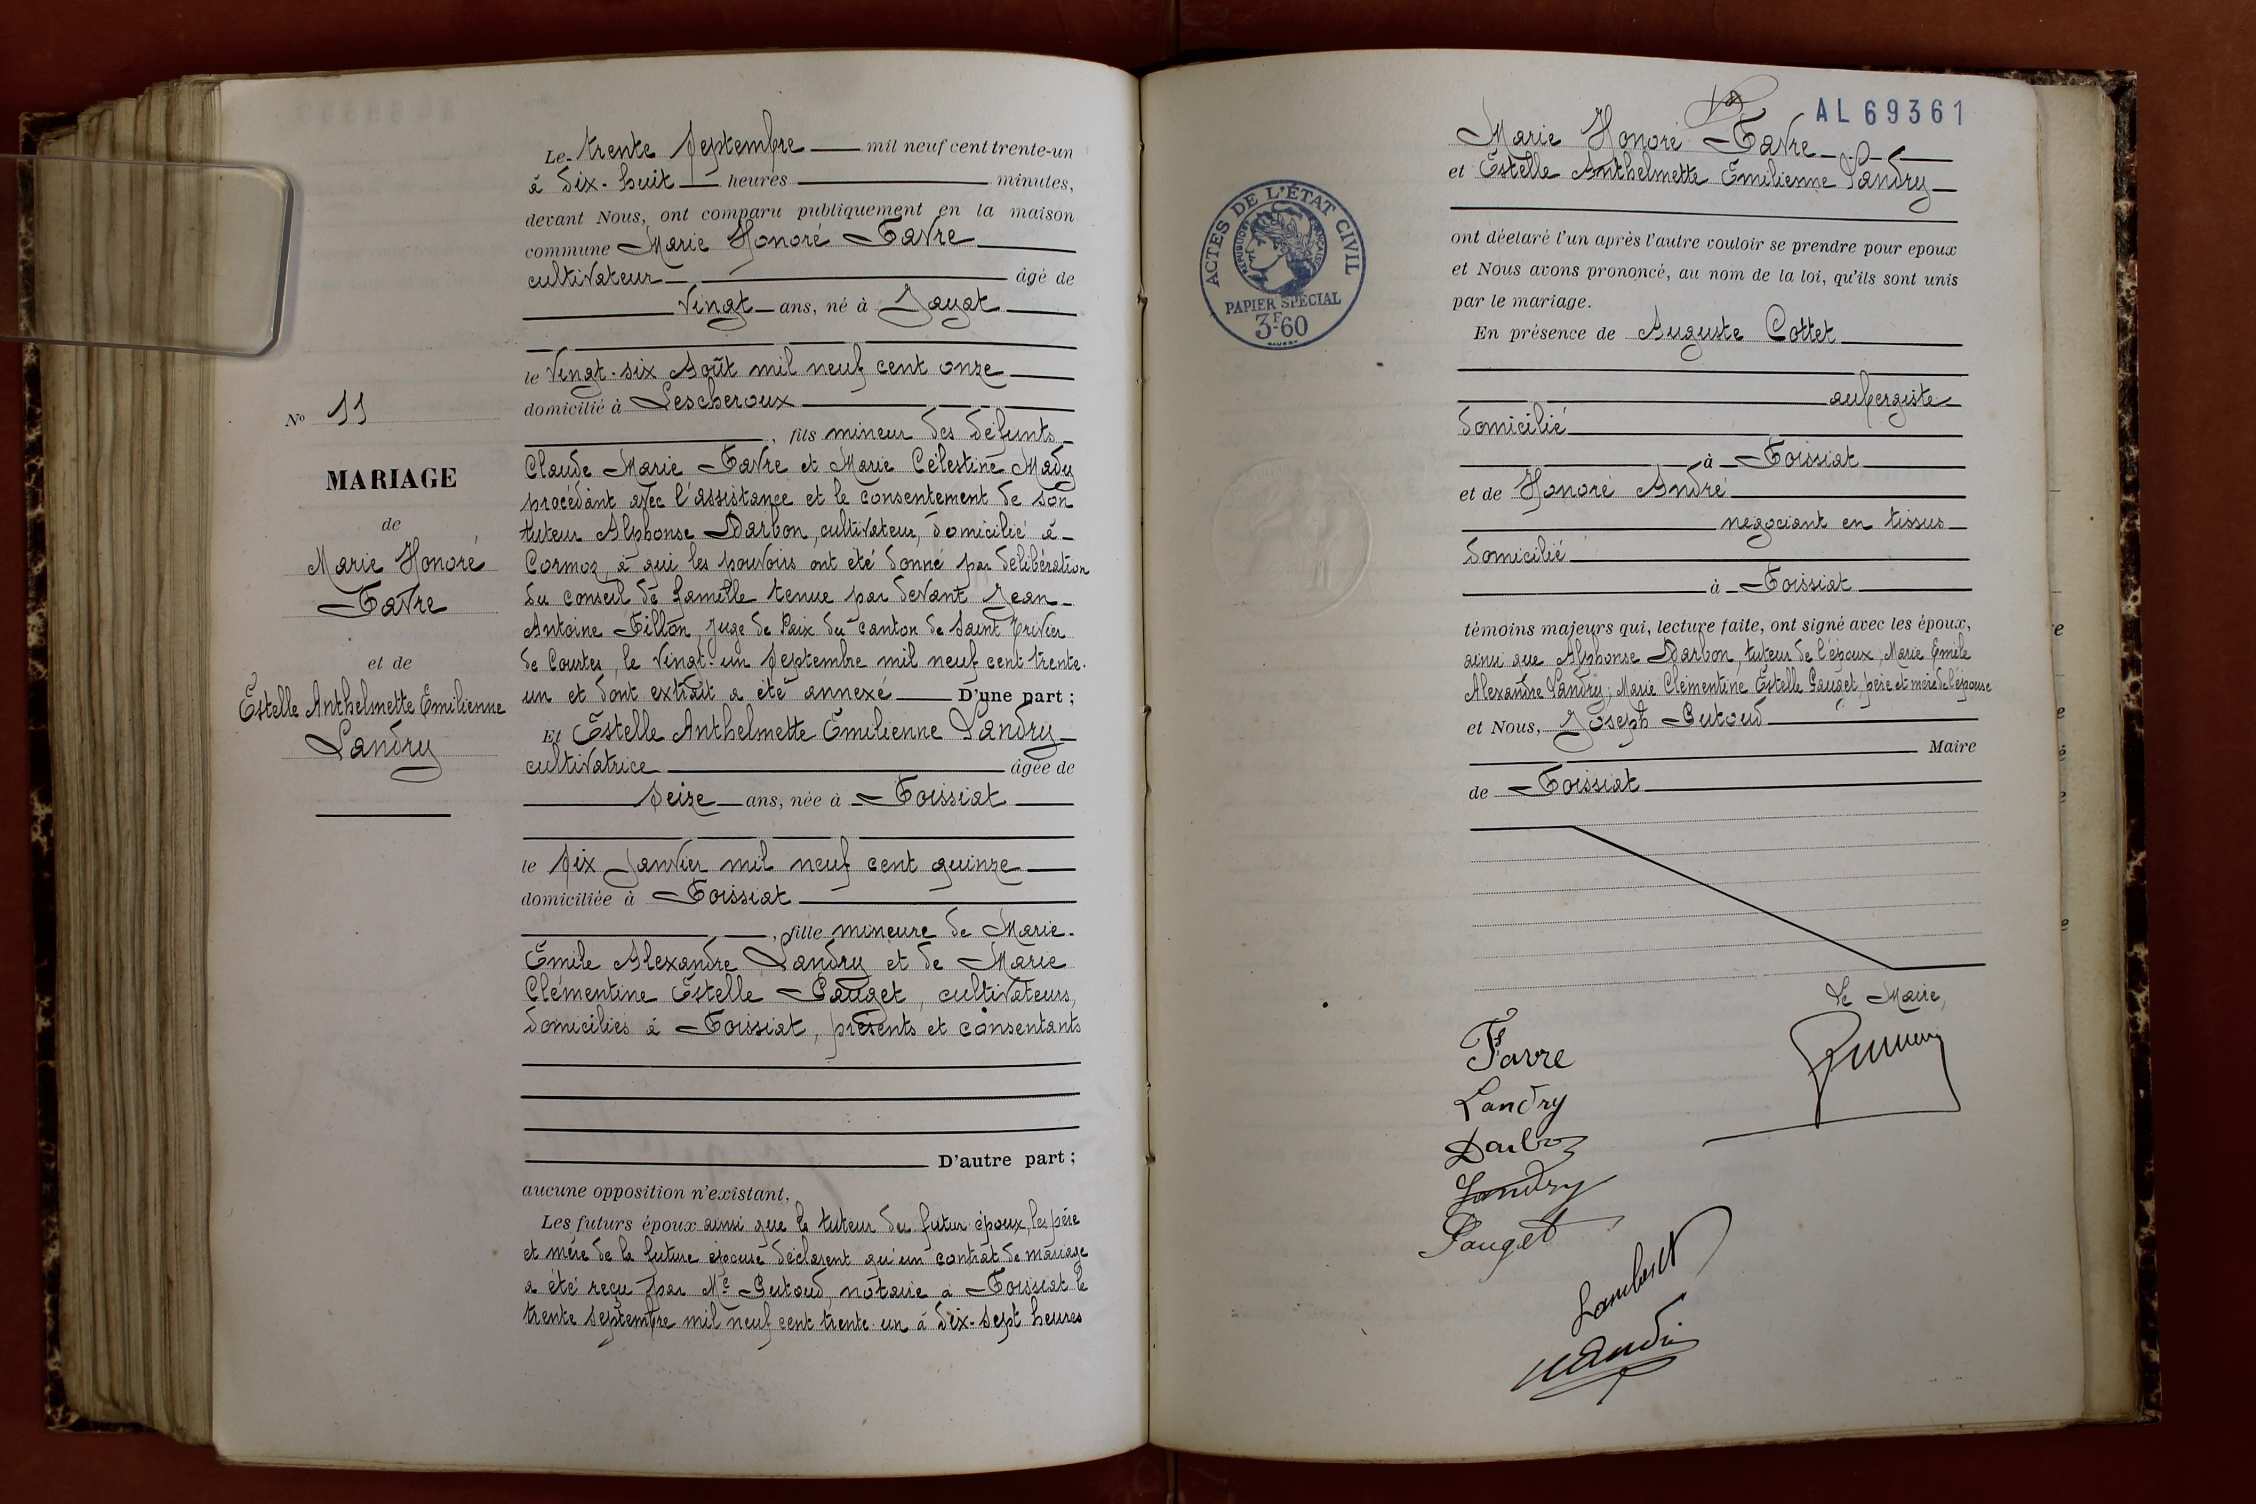 Le trente Septembre mil neuf cent trente-un
à dix-huit heures minutes,
devant Nous, ont comparu publiquement en la maison
commune Marie Honoré Favre
cultivateur âgé de
vingt ans, né à Jayat
le vingt-six Août mil neuf cent onze
domicilié à Lescheroux
, fils mineur des défunts
Claude Marie Favre et Marie Célestine Mady
procédant avec l'assistance et le consentement de son
tuteur Alphonse Darbon, cultivateur, domicilié à
Cormoz, à qui les pouvoirs ont été donné par délibération
du conseil de famille tenue par devant Jean
Antoine Fillon, Juge de Paix du canton de Saint Trivier
de Courtes, le vingt-un Septembre mil neuf cent trente-
un et dont extrait a été annexé D'une part ;
Et Estelle Anthelmette Emilienne Landry
cultivatrice âgée de
Seize ans, née à Foissiat
le Six Janvier mil neuf cent quinze
domiciliée à Foissiat
, fille mineure de Marie-
Emile Alexandre Landry et de Marie
Clémentine Estelle Pauget, cultivateurs,
domiciliés à Foissiat, présents et consentants
D'autre part ;
aucune opposition n'existant,
Les futurs époux ainsi que le tuteur du futur époux, les père
et mère de la future épouse déclarent qu'un contrat de mariage
a été reçu par Me Putoud, notaire à Foissiat le
trente septembre mil neuf cent trente-un à dix-sept heures
No 11
MARIAGE
de
Marie Honoré
Favre
et de
Estelle Anthelmette Emilienne
Landry
AL 69361
Marie Honoré Favre
et Estelle Anthelmette Emilienne Landry
ont déclaré l'un après l'autre vouloir se prendre pour epoux
et Nous avons prononcé, au nom de la loi, qu'ils sont unis
par le mariage.
En présence de Auguste Cottet
aubergiste
domicilié
à Foissiat
et de Honoré André
négociant en tissus
domicilié
à Foissiat
témoins majeurs qui, lecture faite, ont signé avec les époux,
ainsi que Alphonse Darbon, tuteur de l'époux, Marie Emile
Alexandre Landry, Marie Clémentine Estelle Pauget, père et mère de l'épouse
et Nous, Joseph Putoud
Maire
de Foissiat
Le Maire,
Favre
Landry
Darbon
Landry
Pauget
ACTES DE L'ÉTAT CIVIL
RÉPUBLIQUE FRANÇAISE
PAPIER SPÉCIAL
3F60